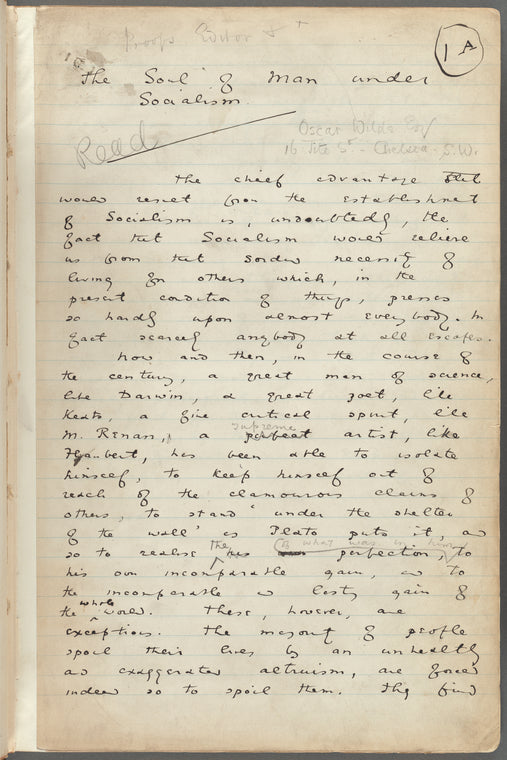 Proofs Editor
1 A
The Soul of Man under
Socialism.
Read
Oscar Wilde Esq
16 Tite St. - Chelsea. S.W.
The chief advantage that
would result from the establishment
of Socialism is, undoubtedly, the
fact that Socialism would relieve
us from that sordid necessity of
living for others which, in the
present condition of things, presses
so hardly upon almost everybody. In
fact scarcely anybody at all escapes.
Now and then, in the course of
the century, a great man of science,
like Darwin, a great poet, like
Keats, a fine critical spirit, like
M. Renan, a
supreme
perfect artist, like
Flaubert, has been able to isolate
himself, to keep himself out of
reach of the clamourous claims of
others, to stand "under the shelter
of the wall" as Plato puts it, and
the of what was in him,
so to realise his perfection, to
his own incomparable gain, and to
the incomparable and lasting gain of
whole
the world. These, however, are
exceptions. The majority of people
spoil their lives by an unhealthy
and exaggerated altruism, are forced
indeed so to spoil them. They find